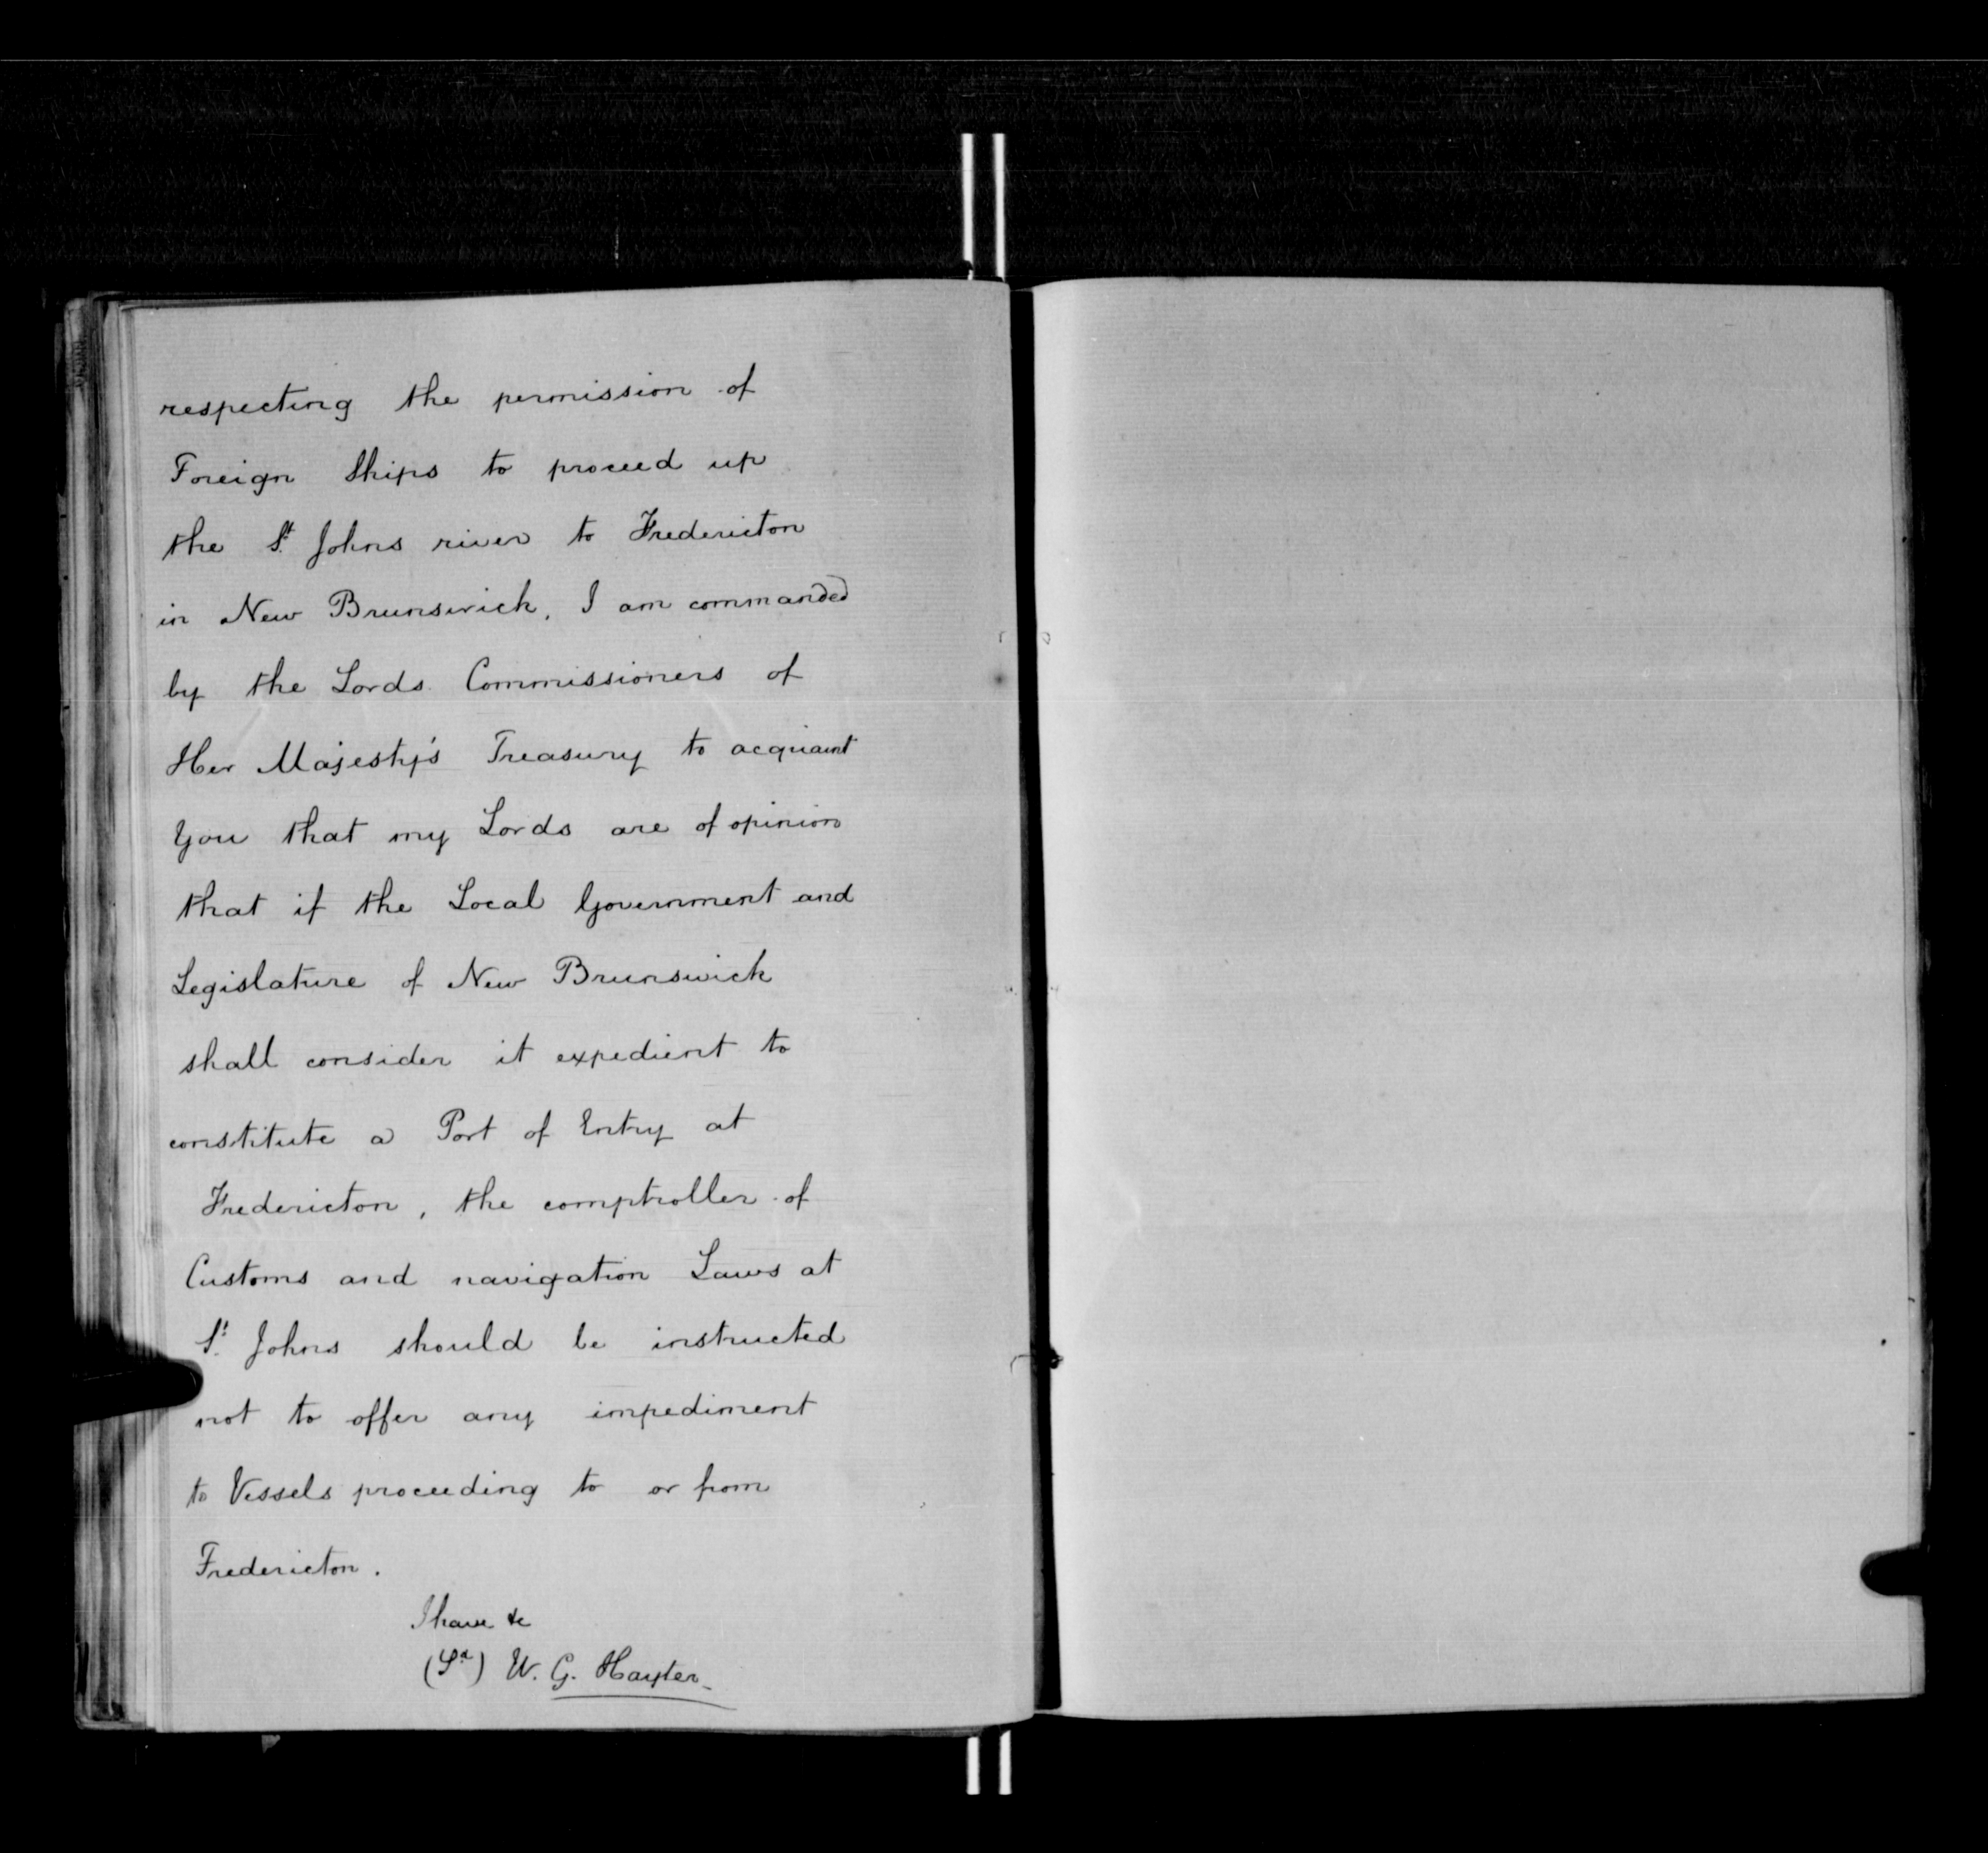 respecting the permission of
Foreign Ships to proceed up
the St Johns river to Fredericton
in New Brunswick, I am commanded
by the Lords Commissioners of
Her Majesty's Treasury to acquaint
you that my Lords are of opinion
that if the Local Government and
Legislature of New Brunswick
shall consider it expedient to
constitute a Port of Entry at
Fredericton, the comptroller of
Customs and navigation Laws at
St Johns should be instructed
not to offer any impediment
to Vessels proceeding to or from
Fredericton.
I have &c
(Sd) W. G. Hayter